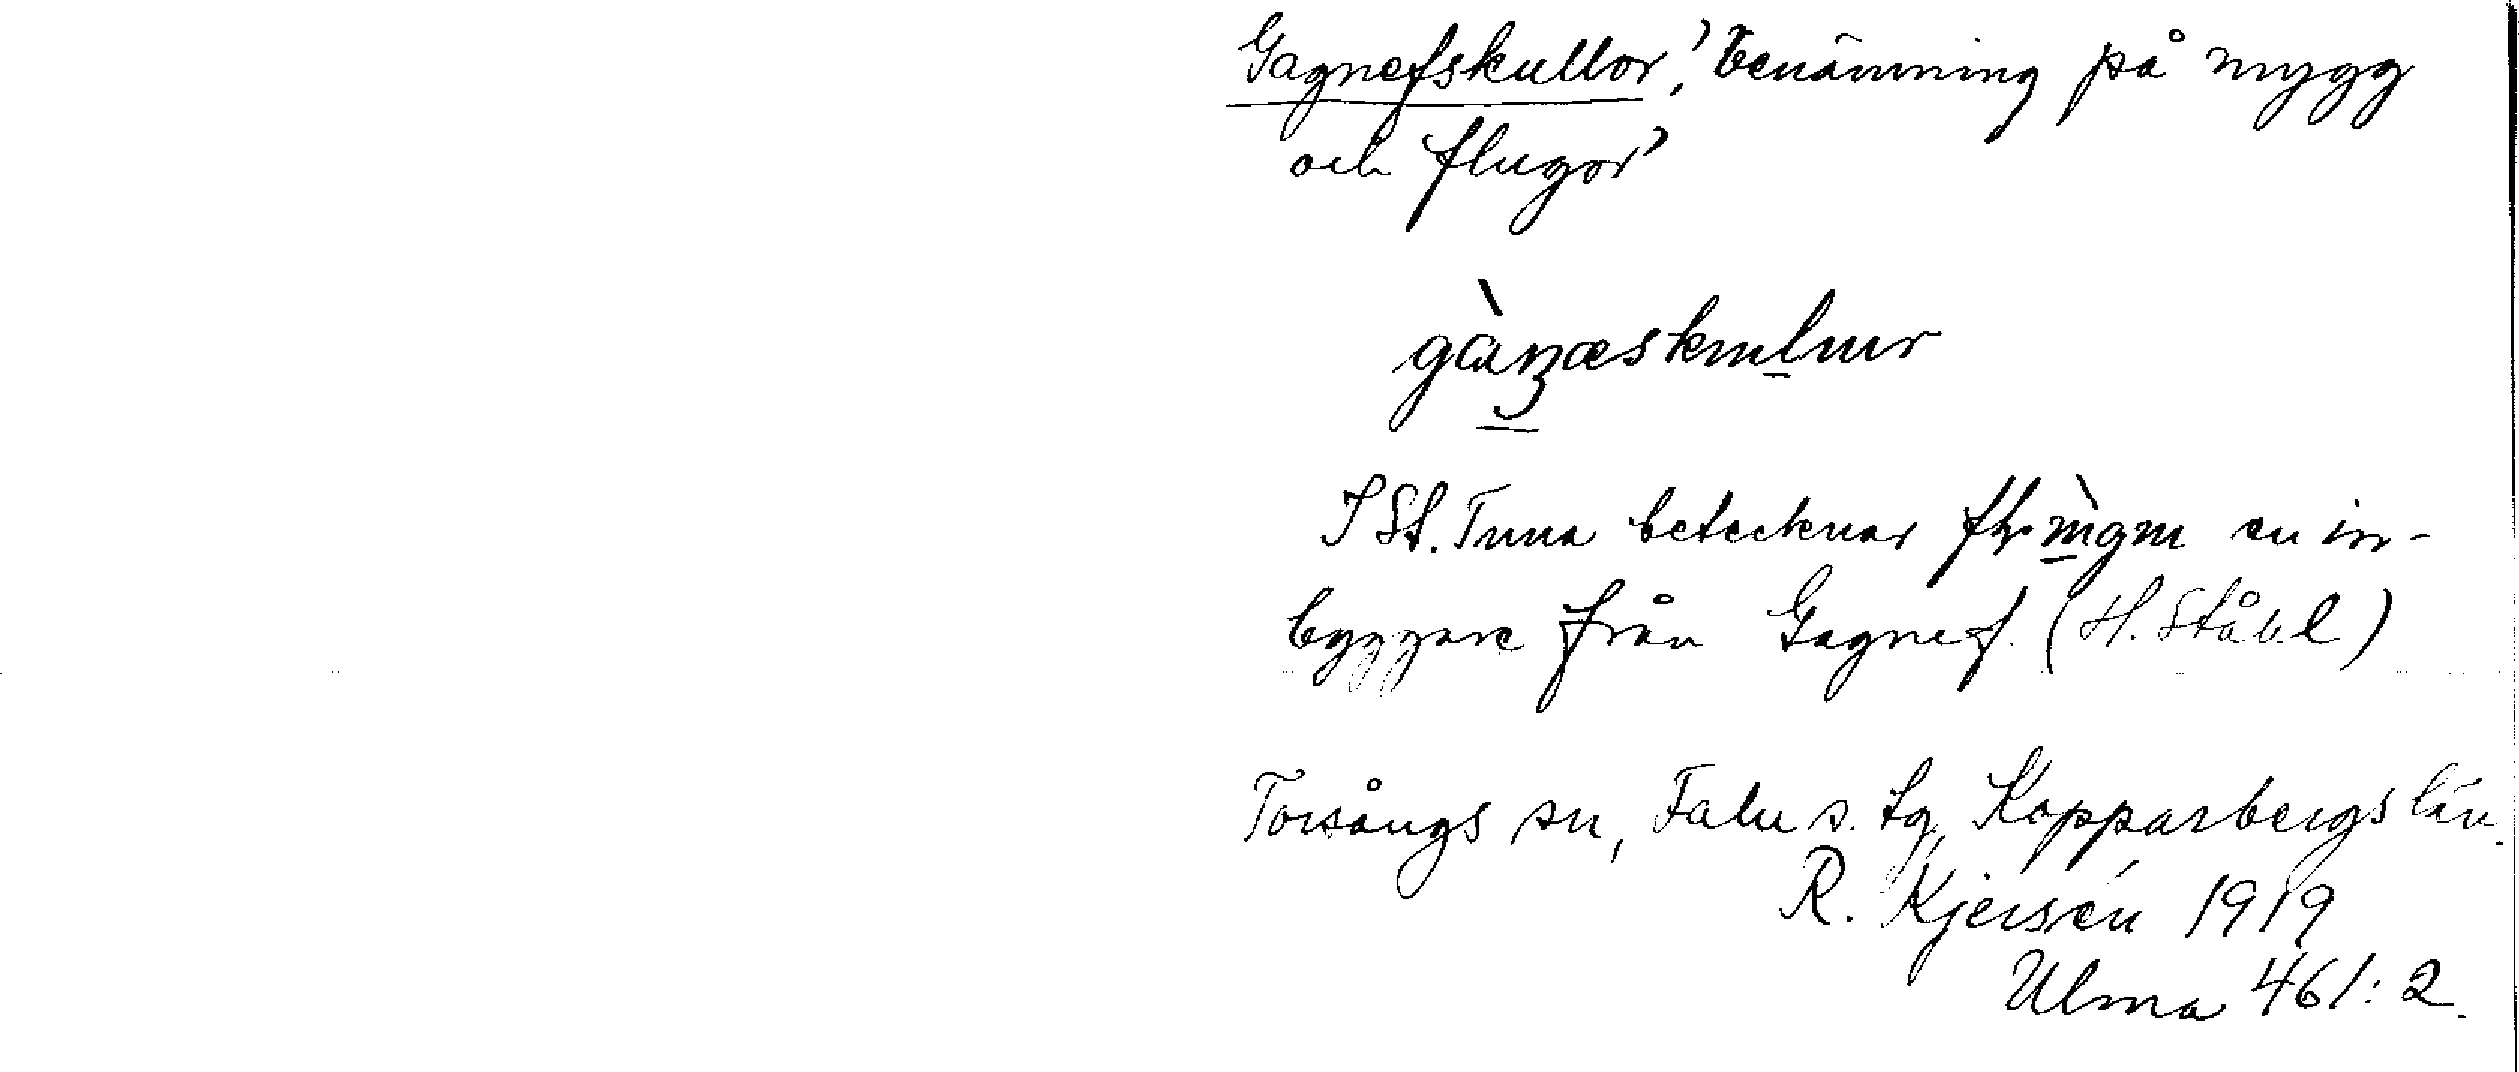 Gagnefskullor, 'benämning på mygg
och flugor'
I St. Tuna betecknar en in-
byggare från Gagnef. (H. Ståhl)
Torsångs sn, Falu s. tg, Kopparbergs län.
R. Kjersén 1919
Ulma 461:2.